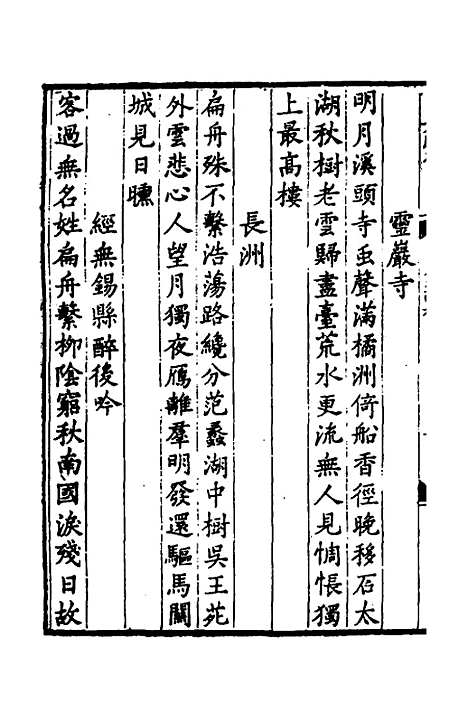 靈巖寺
明月溪頭寺䖝聲滿橘洲倚船香徑晚移石太
湖秋樹老雲歸盡臺荒水更流無人見惆悵獨
上最高樓
長洲
扁舟殊不繫浩蕩路纔分范蠡湖中樹吳王苑
外雲悲心人望月獨夜鴈離羣明發還驅馬關
城見日曛
經無錫縣醉後吟
客過無名姓扁舟繫柳陰窮秋南國淚殘日故